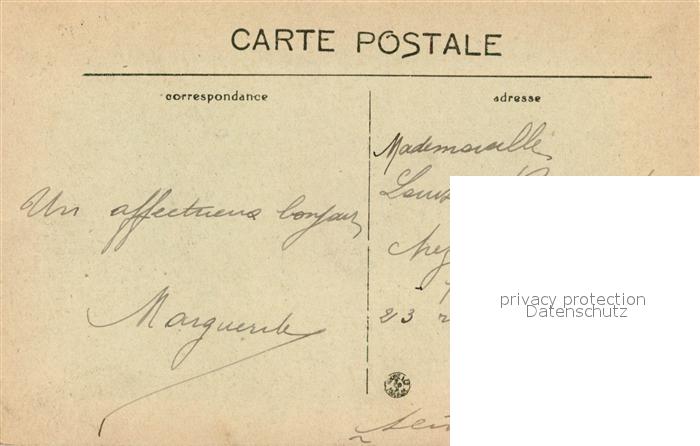 CARTE POSTALE
correspondance
adresse
Un affectueux bonjour
Marguerite
Mademoiselle
Chez
23
privacy protection
Datenschutz